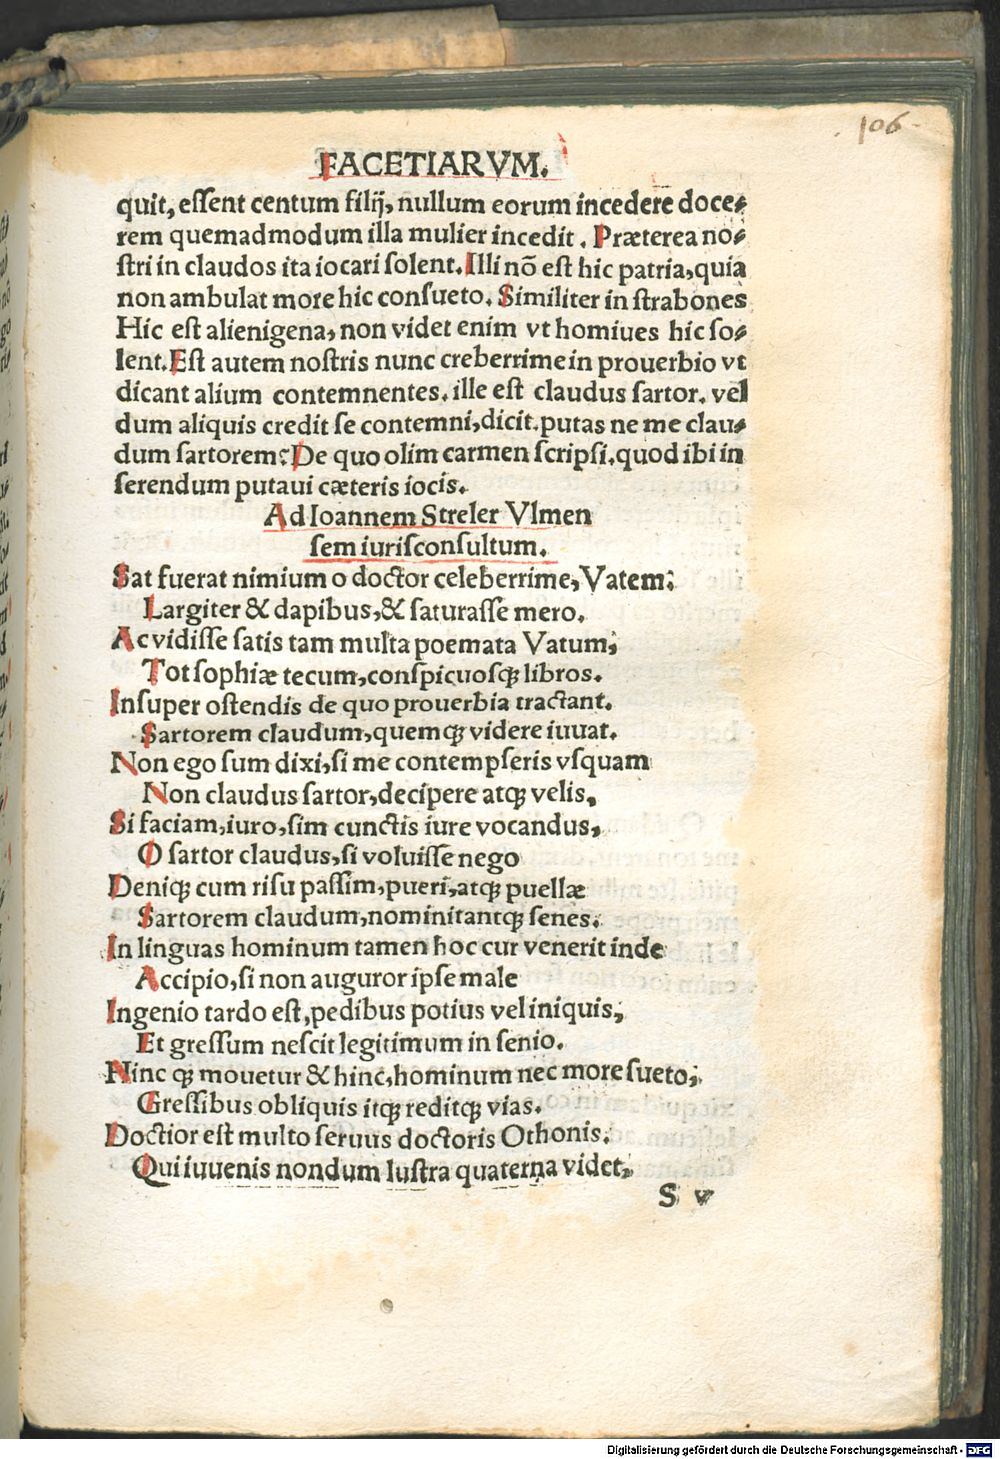 106
FACETIARVM.
quit, eſſent centum filij, nullum eorum incedere doce⸗
rem quemadmodum illa mulier incedit. Præterea no⸗
ſtri in claudos ita iocari ſolent. Illi nõ eſt hic patria, quia
non ambulat more hic conſueto. Similiter in ſtrabones
Hic eſt alienigena, non videt enim vt homiues hic ſo⸗
lent. Eſt autem noſtris nunc creberrime in prouerbio vt
dicant alium contemnentes. ille eſt claudus ſartor. vel
dum aliquis credit ſe contemni, dicit. putas ne me clau⸗
dum ſartorem? De quo olim carmen ſcripſi. quod ibi in
ſerendum putaui cæteris iocis.
Ad Ioannem Streler Vlmen
ſem iuriſconſultum.
Sat fuerat nimium o doctor celeberrime, Vatem;
Largiter & dapibus, & ſaturaſſe mero.
Ac vidiſſe ſatis tam multa poemata Vatum;
Tot ſophiæ tecum, conſpicuoſqꝫ libros.
Inſuper oſtendis de quo prouerbia tractant.
Sartorem claudum, quemqꝫ videre iuuat.
Non ego ſum dixi, ſi me contempſeris vſquam
Non claudus ſartor, decipere atqꝫ velis,
Si faciam, iuro, ſim cunctis iure vocandus,
O ſartor claudus, ſi voluiſſe nego
Deniqꝫ cum riſu paſſim, pueri, atqꝫ puellæ
Sartorem claudum, nominitantqꝫ ſenes.
In linguas hominum tamen hoc cur venerit inde
Accipio, ſi non auguror ipſe male
Ingenio tardo eſt, pedibus potius vel iniquis;
Et greſſum neſcit legitimum in ſenio.
Ninc qꝫ mouetur & hinc, hominum nec more ſueto;
Greſſibus obliquis itqꝫ reditqꝫ vias.
Doctior eſt multo ſeruus doctoris Othonis.
Qui iuuenis nondum luſtra quaterna videt,
S v
Digitalisierung gefördert durch die Deutsche Forschungsgemeinschaft - DFG